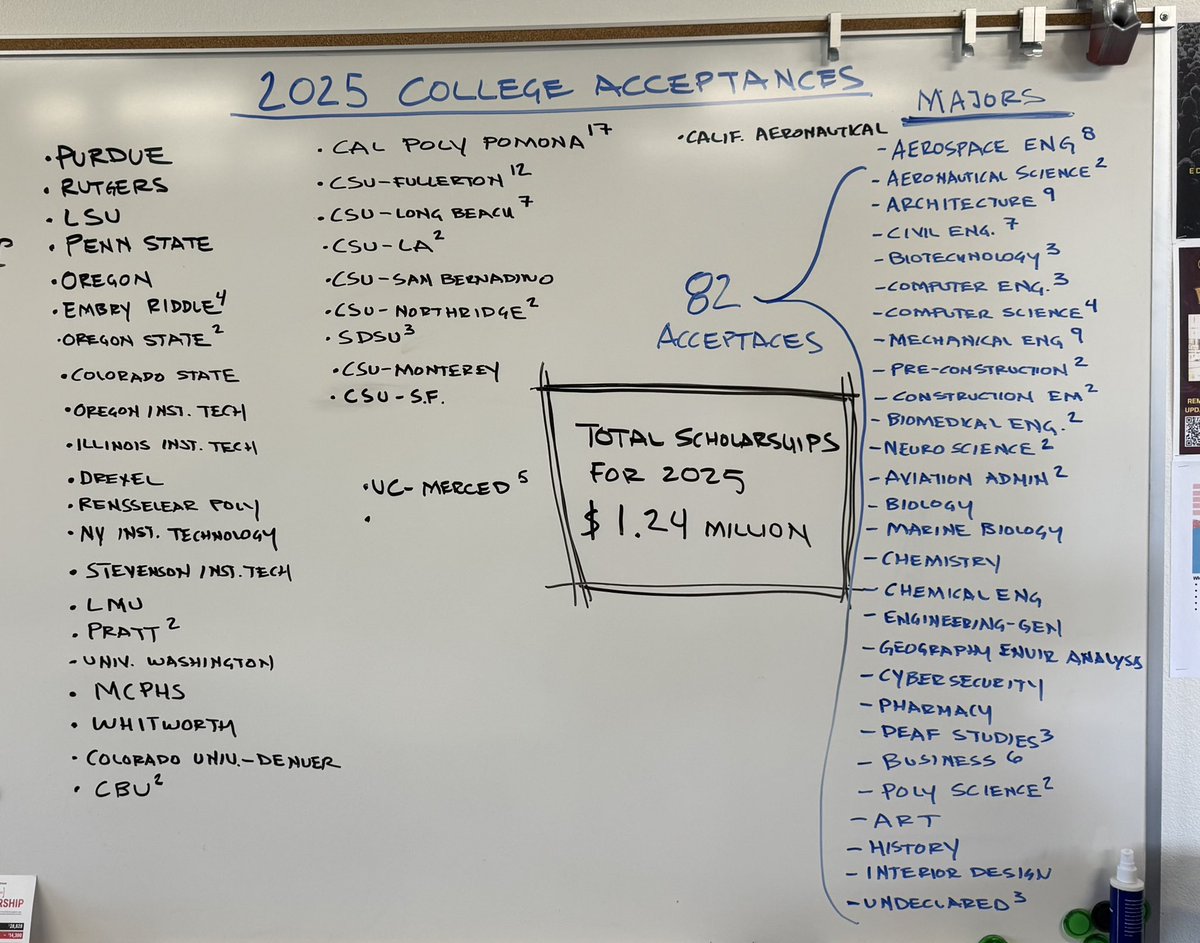 2025 COLLEGE ACCEPTANCES
• PURDUE
• RUTGERS
• LSU
• PENN STATE
• OREGON
• EMBRY RIDDLE⁴
• OREGON STATE²
• COLORADO STATE
• OREGON INST. TECH
• ILLINOIS INST. TECH
• DREXEL
• RENSSELEAR POLY
• NY INST. TECHNOLOGY
• STEVENSON INST. TECH
• LMU
• PRATT²
- UNIV. WASHINGTON
• MCPHS
• WHITWORTH
• COLORADO UNIV.-DENVER
• CBU²
• CAL POLY POMONA¹⁷
• CSU-FULLERTON¹²
• CSU-LONG BEACH⁷
• CSU-LA²
• CSU-SAN BERNADINO
• CSU-NORTHRIDGE²
• SDSU³
• CSU-MONTEREY
• CSU-S.F.
• UC-MERCED⁵
•
• CALIF. AERONAUTICAL
82
ACCEPTACES
TOTAL SCHOLARSHIPS
FOR 2025
$ 1.24 MILLION
MAJORS
- AEROSPACE ENG⁸
- AERONAUTICAL SCIENCE²
- ARCHITECTURE⁹
- CIVIL ENG.⁷
- BIOTECHNOLOGY³
- COMPUTER ENG.³
- COMPUTER SCIENCE⁴
- MECHANICAL ENG⁹
- PRE-CONSTRUCTION²
- CONSTRUCTION EM²
- BIOMEDICAL ENG.²
- NEURO SCIENCE²
- AVIATION ADMIN²
- BIOLOGY
- MARINE BIOLOGY
- CHEMISTRY
- CHEMICAL ENG
- ENGINEERING-GEN
- GEOGRAPHY ENVIR ANALYSIS
- CYBERSECURITY
- PHARMACY
- DEAF STUDIES³
- BUSINESS⁶
- POLY SCIENCE²
- ART
- HISTORY
- INTERIOR DESIGN
- UNDECLARED³